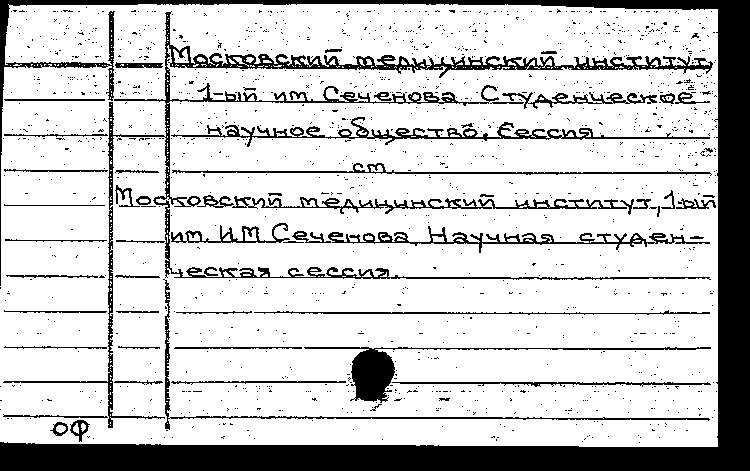 Московский медицинский институт,
1-ый им. Сеченова. Студенческое
научное общество. Сессия.
ст.
Московский медицинский институт, 1-ый
им. И.М Сеченова. Научная студен-
ческая сессия.
ОФ